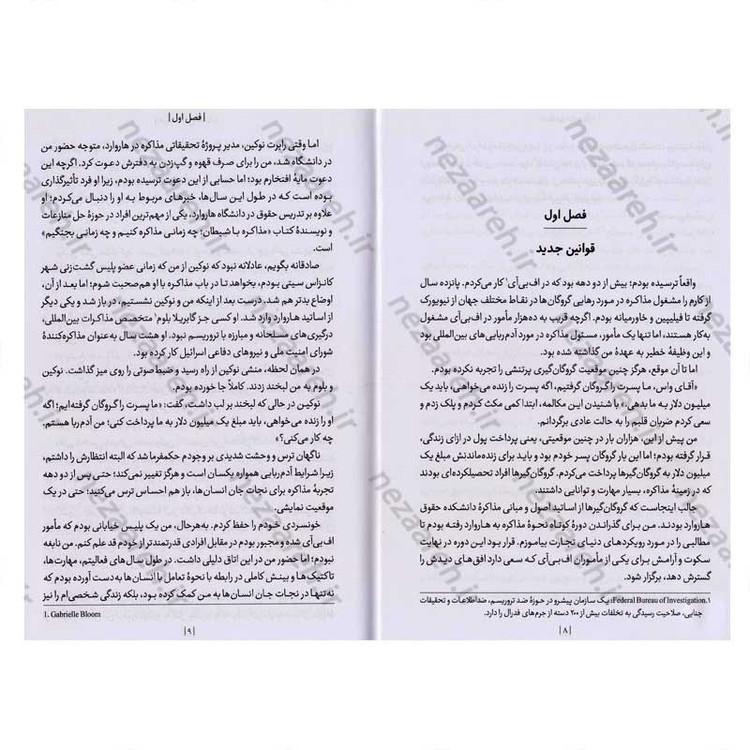 فصل اول
قوانین جدید
واقعاً ترسیده بودم؛ بیش از دو دهه بود که در اف‌بی‌آی¹ کار می‌کردم. پانزده سال
از کارم را مشغول مذاکره در مورد رهایی گروگان‌ها در نقاط مختلف جهان از نیویورک
گرفته تا فیلیپین و خاورمیانه بودم. اگرچه قریب به ده‌هزار مأمور در اف‌بی‌آی مشغول
به‌کار هستند، اما تنها یک مأمور، مسئول مذاکره در مورد آدم‌ربایی‌های بین‌المللی بود
و این وظیفهٔ خطیر به عهدهٔ من گذاشته شده بود.
اما تا آن موقع، هرگز چنین موقعیت گروگان‌گیری پرتنشی را تجربه نکرده بودم.
«آقای واس، ما پسرت را گروگان گرفتیم، اگه پسرت را زنده می‌خواهی، باید یک
میلیون دلار به ما بدهی.» با شنیدن این مکالمه، ابتدا کمی مکث کردم و پلک زدم و
سعی کردم ضربان قلبم را به حالت عادی برگردانم.
من پیش از این، هزاران بار در چنین موقعیتی، یعنی پرداخت پول در ازای زندگی،
قرار گرفته بودم؛ اما این بار گروگان پسر خودم بود و باید برای زنده‌ماندنش مبلغ یک
میلیون دلار به گروگان‌گیرها پرداخت می‌کردم. گروگان‌گیرها افراد تحصیلکرده‌ای بودند
که در زمینهٔ مذاکره، بسیار مهارت و توانایی داشتند.
جالب اینجاست که گروگان‌گیرها از اساتید اصول و مبانی مذاکرهٔ دانشکده حقوق
هاروارد بودند. من برای گذراندن دورهٔ کوتاه نحوهٔ مذاکره به هاروارد رفته بودم تا
مطالبی را در مورد رویکردهای دنیای تجارت بیاموزم. قرار بود این دوره در نهایت
سکوت و آرامش برای یکی از مأموران اف‌بی‌آی که سعی دارد افق‌های دیدش را
گسترش دهد، برگزار شود.
۱. Federal Bureau of Investigation؛ یک سازمان پیشرو در حوزهٔ ضد تروریسم، ضداطلاعات و تحقیقات
جنایی، صلاحیت رسیدگی به تخلفات بیش از ۲۰۰ دسته از جرم‌های فدرال را دارد.
|۸|
|فصل اول|
اما وقتی رابرت نوکین، مدیر پروژهٔ تحقیقاتی مذاکره در هاروارد، متوجه حضور من
در دانشگاه شد، من را برای صرف قهوه و گپ‌زدن به دفترش دعوت کرد. اگرچه این
دعوت مایهٔ افتخارم بود؛ اما حسابی از این دعوت ترسیده بودم، زیرا او فرد تأثیرگذاری
بوده است که در طول این سال‌ها، خبرهای مربوط به او را دنبال می‌کردم؛ او
علاوه بر تدریس حقوق در دانشگاه هاروارد، یکی از مهم‌ترین افراد در حوزهٔ حل منازعات
و نویسندهٔ کتاب «مذاکره با شیطان؛ چه زمانی مذاکره کنیم و چه زمانی بجنگیم»
است.
صادقانه بگویم، عادلانه نبود که نوکین از من که زمانی عضو پلیس گشت‌زنی شهر
کانزاس سیتی بودم، بخواهد تا در باب مذاکره با او هم‌صحبت شوم؛ اما بعد از آن،
اوضاع بدتر هم شد، درست بعد از اینکه من و نوکین نشستیم، در باز شد و یکی دیگر
از اساتید هاروارد وارد شد. او کسی جز گابریلا بلوم¹ متخصص مذاکرات بین‌المللی،
درگیری‌های مسلحانه و مبارزه با تروریسم نبود. او هشت سال به‌عنوان مذاکره‌کنندهٔ
شورای امنیت ملی و نیروهای دفاعی اسرائیل کار کرده بود.
در همان لحظه، منشی نوکین از راه رسید و ضبط‌صوتی را روی میز گذاشت. نوکین
و بلوم به من لبخند زدند. کاملاً جا خورده بودم.
نوکین در حالی که لبخند بر لب داشت، گفت: «ما پسرت را گروگان گرفته‌ایم؛ اگه
او را زنده می‌خواهی، باید مبلغ یک میلیون دلار به ما پرداخت کنی. من آدم‌ربا هستم.
چه کار می‌کنی؟»
ناگهان ترس و وحشت شدیدی بر وجودم حکمفرما شد که البته انتظارش را داشتم،
زیرا شرایط آدم‌ربایی همواره یکسان است و هرگز تغییر نمی‌کند؛ حتی پس از دو دهه
تجربهٔ مذاکره برای نجات جان انسان‌ها، باز هم احساس ترس می‌کنید؛ حتی در یک
موقعیت نمایشی.
خونسردی خودم را حفظ کردم. به‌هرحال، من یک پلیس خیابانی بودم که مأمور
اف‌بی‌آی شده و مجبور بودم در مقابل افرادی قدرتمندتر از خودم قد علم کنم. من نابغه
نبودم؛ اما حضور من در این اتاق دلیلی داشت. در طول سال‌های فعالیتم، مهارت‌ها،
تاکتیک‌ها و بینش کاملی در رابطه با نحوهٔ تعامل با انسان‌ها به‌دست آورده بودم که
نه‌تنها در نجات جان انسان‌ها به من کمک کرده بود، بلکه زندگی شخصی‌ام را نیز
1. Gabrielle Bloom
|۹|
nezaareh.ir